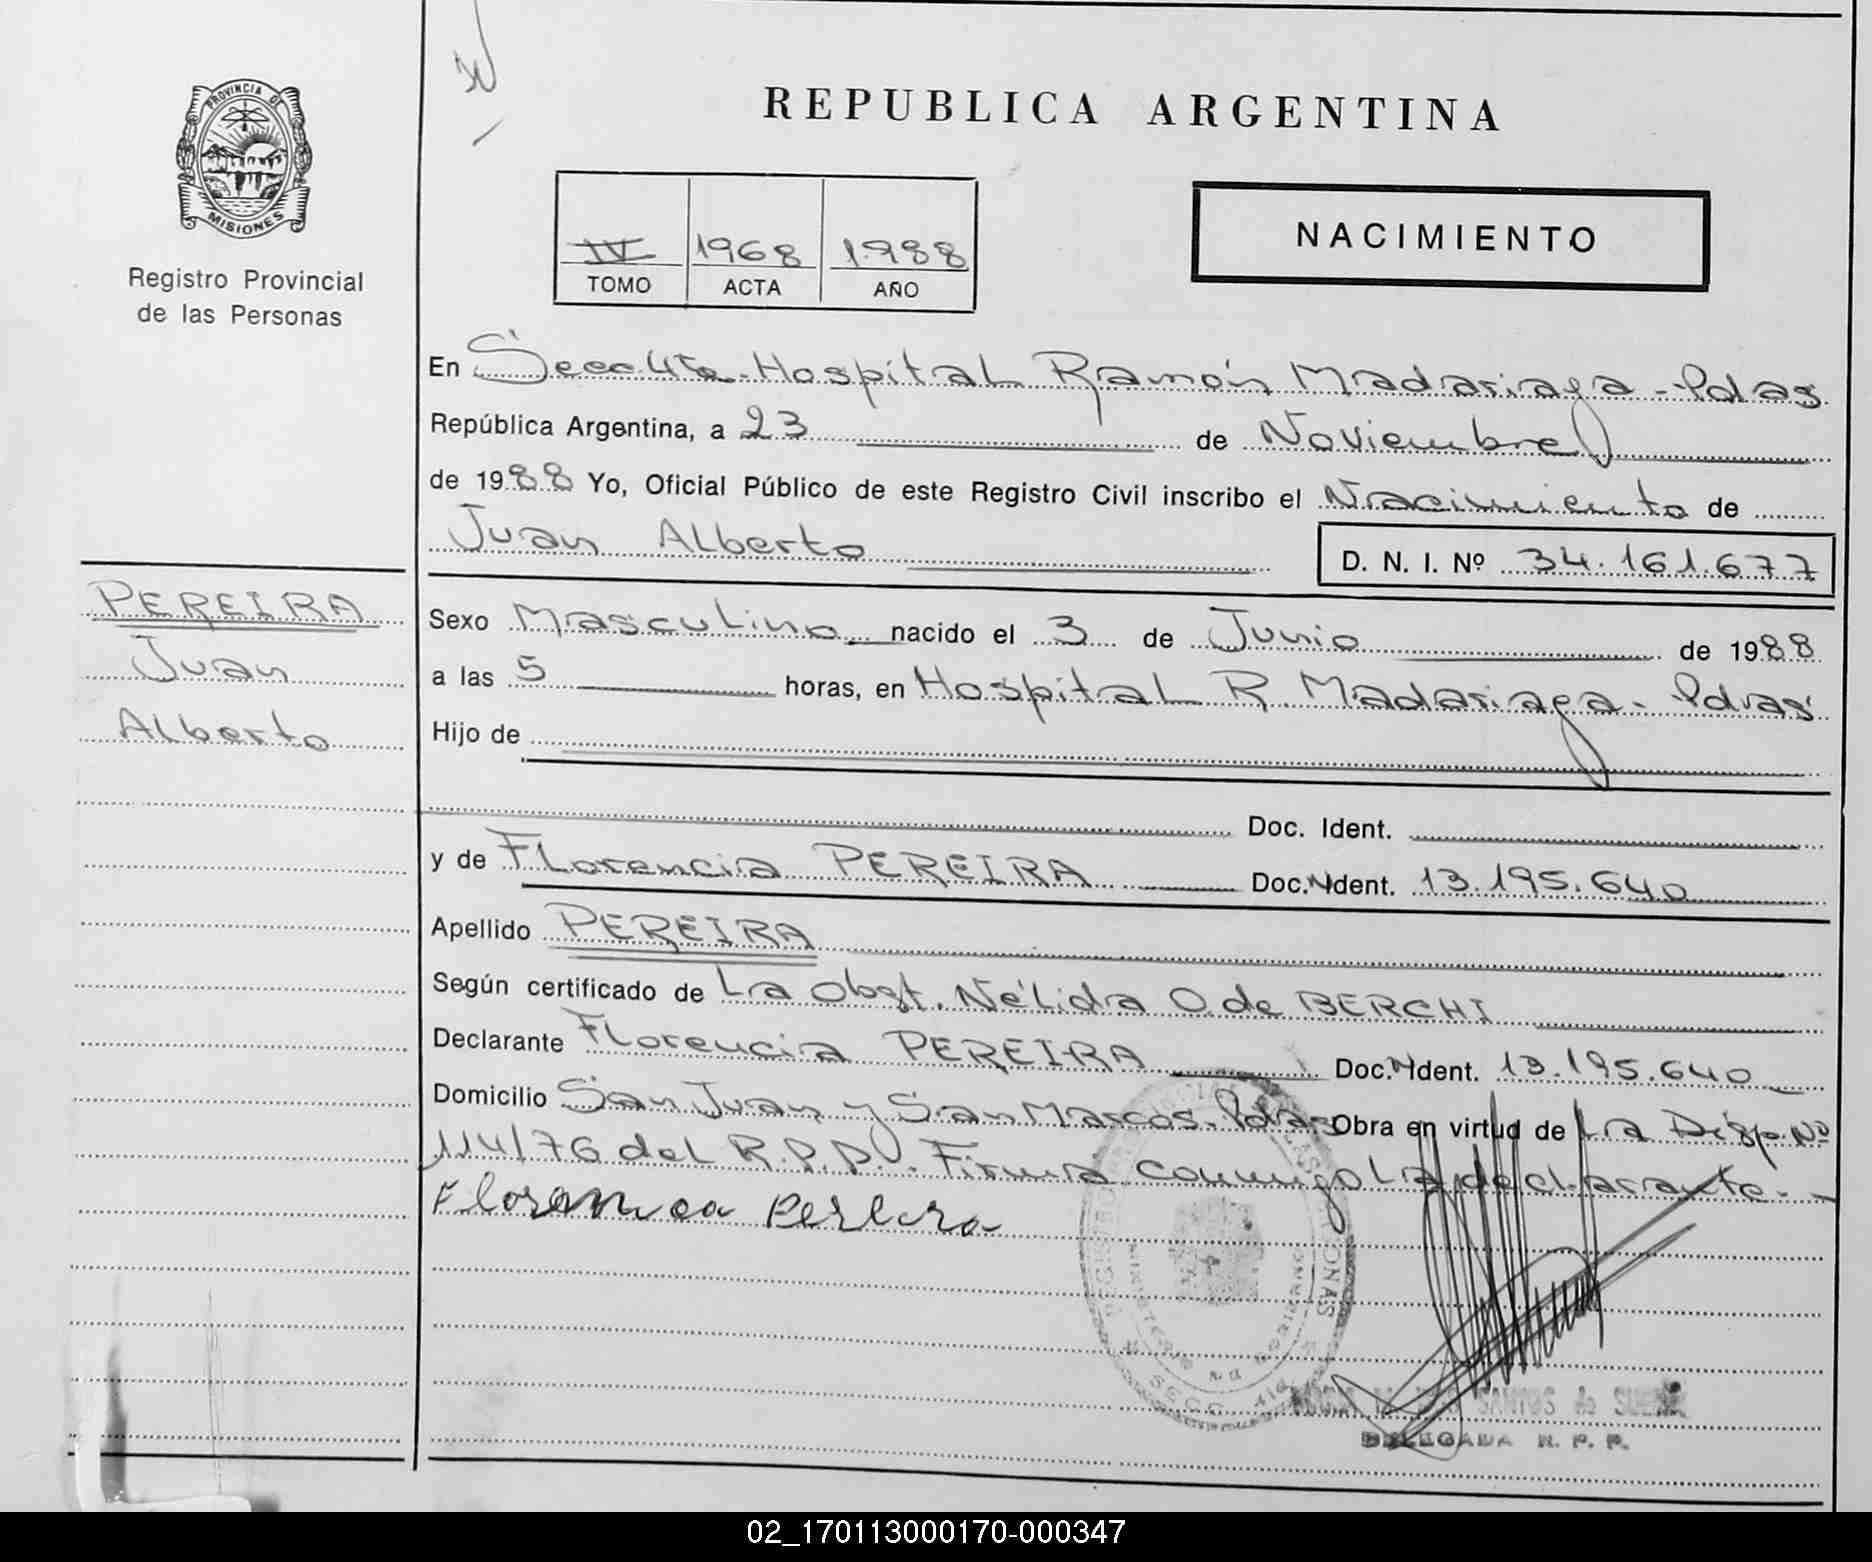 PROVINCIA DE
MISIONES
Registro Provincial
de las Personas
REPUBLICA ARGENTINA
IV 1968 1.988
TOMO ACTA AÑO
NACIMIENTO
En Secc. 4ta. Hospital Ramón Madariaga - Pdas
República Argentina, a 23 de Noviembre
de 1988 Yo, Oficial Público de este Registro Civil inscribo el Nacimiento de
Juan Alberto
D. N. I. Nº 34.161.677
PEREIRA
Juan
Alberto
Sexo Masculino nacido el 3 de Junio de 1988
a las 5 horas, en Hospital R. Madariaga - Pdas
Hijo de
Doc. Ident.
y de Florencia PEREIRA Doc. Ndent. 13.195.640
Apellido PEREIRA
Según certificado de La Obst. Nélida O. de BERCHI
Declarante Florencia PEREIRA Doc. Ndent. 13.195.640
Domicilio San Juan y San Marcos. Pdas Obra en virtud de La Disp. Nº
114/76 del R.P.P. Firma conmigo La declarante.-
Florencia Pereira
REGISTRO PROVINCIAL DE LAS PERSONAS
MINISTERIO DE GOBIERNO
SECC. 4ta
SANTOS de
DELEGADA R. P. P.
02_170113000170-000347